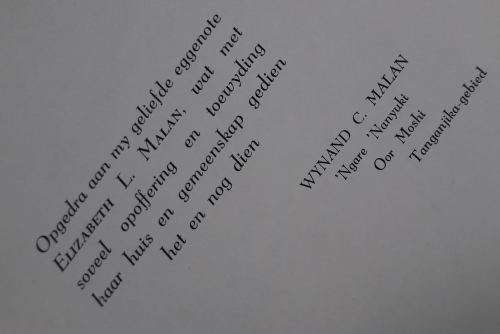 Opgedra aan my geliefde eggenote
ELIZABETH L. MALAN, wat met
soveel opoffering en toewyding
haar huis en gemeenskap gedien
het en nog dien
WYNAND C. MALAN
'Ngare 'Nanyuki
Oor Moshi
Tanganjika-gebied